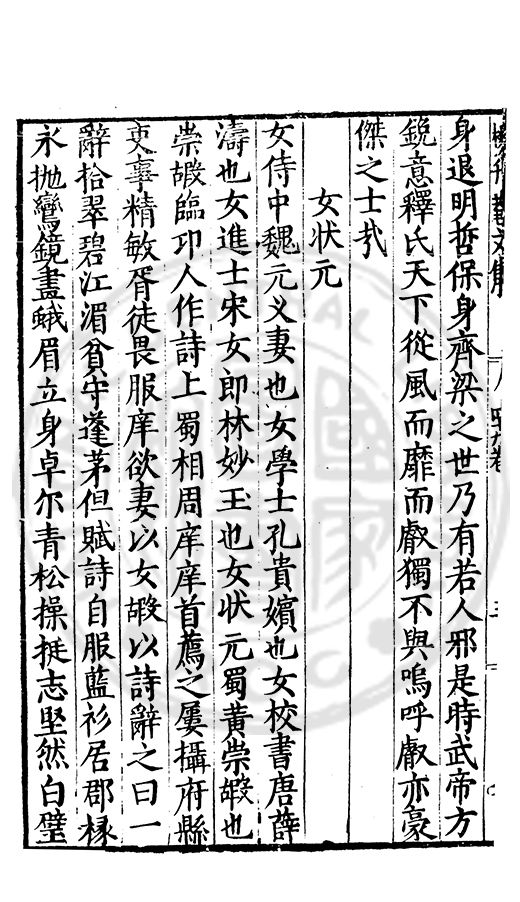 身退明哲保身齊梁之世乃有若人邪是時武帝方
銳意釋氏天下從風而靡而㕡獨不與嗚呼㕡亦豪
傑之士㢤
女狀元
女侍中魏元乂妻也女學士孔貴嬪也女校書唐薛
濤也女進士宋女郎林妙玉也女狀元蜀黄崇嘏也
崇嘏臨卭人作詩上蜀相周庠庠首薦之屢攝府縣
吏事精敏胥徒畏服庠欲妻以女嘏以詩辭之曰一
辭拾翠碧江湄貧守蓬茅但賦詩自服藍衫居郡椽
永抛鸞鏡畫蛾眉立身卓尓青松操挺志堅然白璧